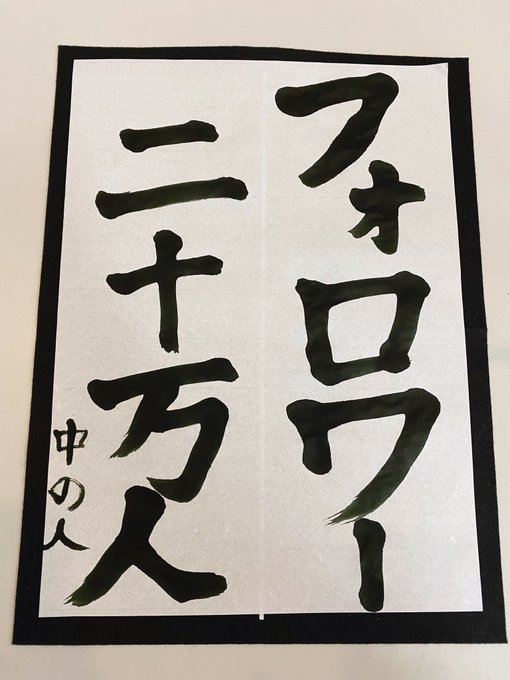 フォロワー
二十万人
中の人